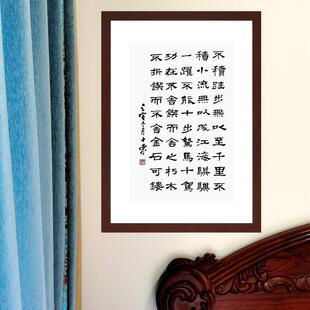 不積跬步無以至千里不
積小流無以成江海騏驥
一躍不能十步駑馬十駕
功在不舍鍥而舍之朽木
不折鍥而不舍金石可鏤